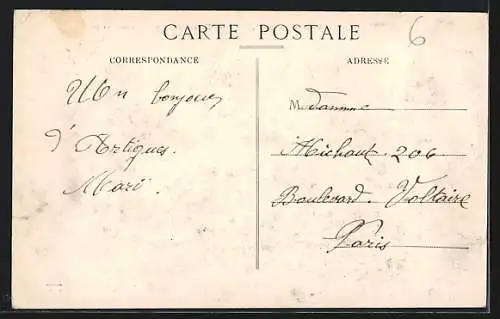 CARTE POSTALE
6
CORRESPONDANCE
Un bonjour
d'Artigues.
Mari.
ADRESSE
Madame
Michaut 206
Boulevard. Voltaire
Paris